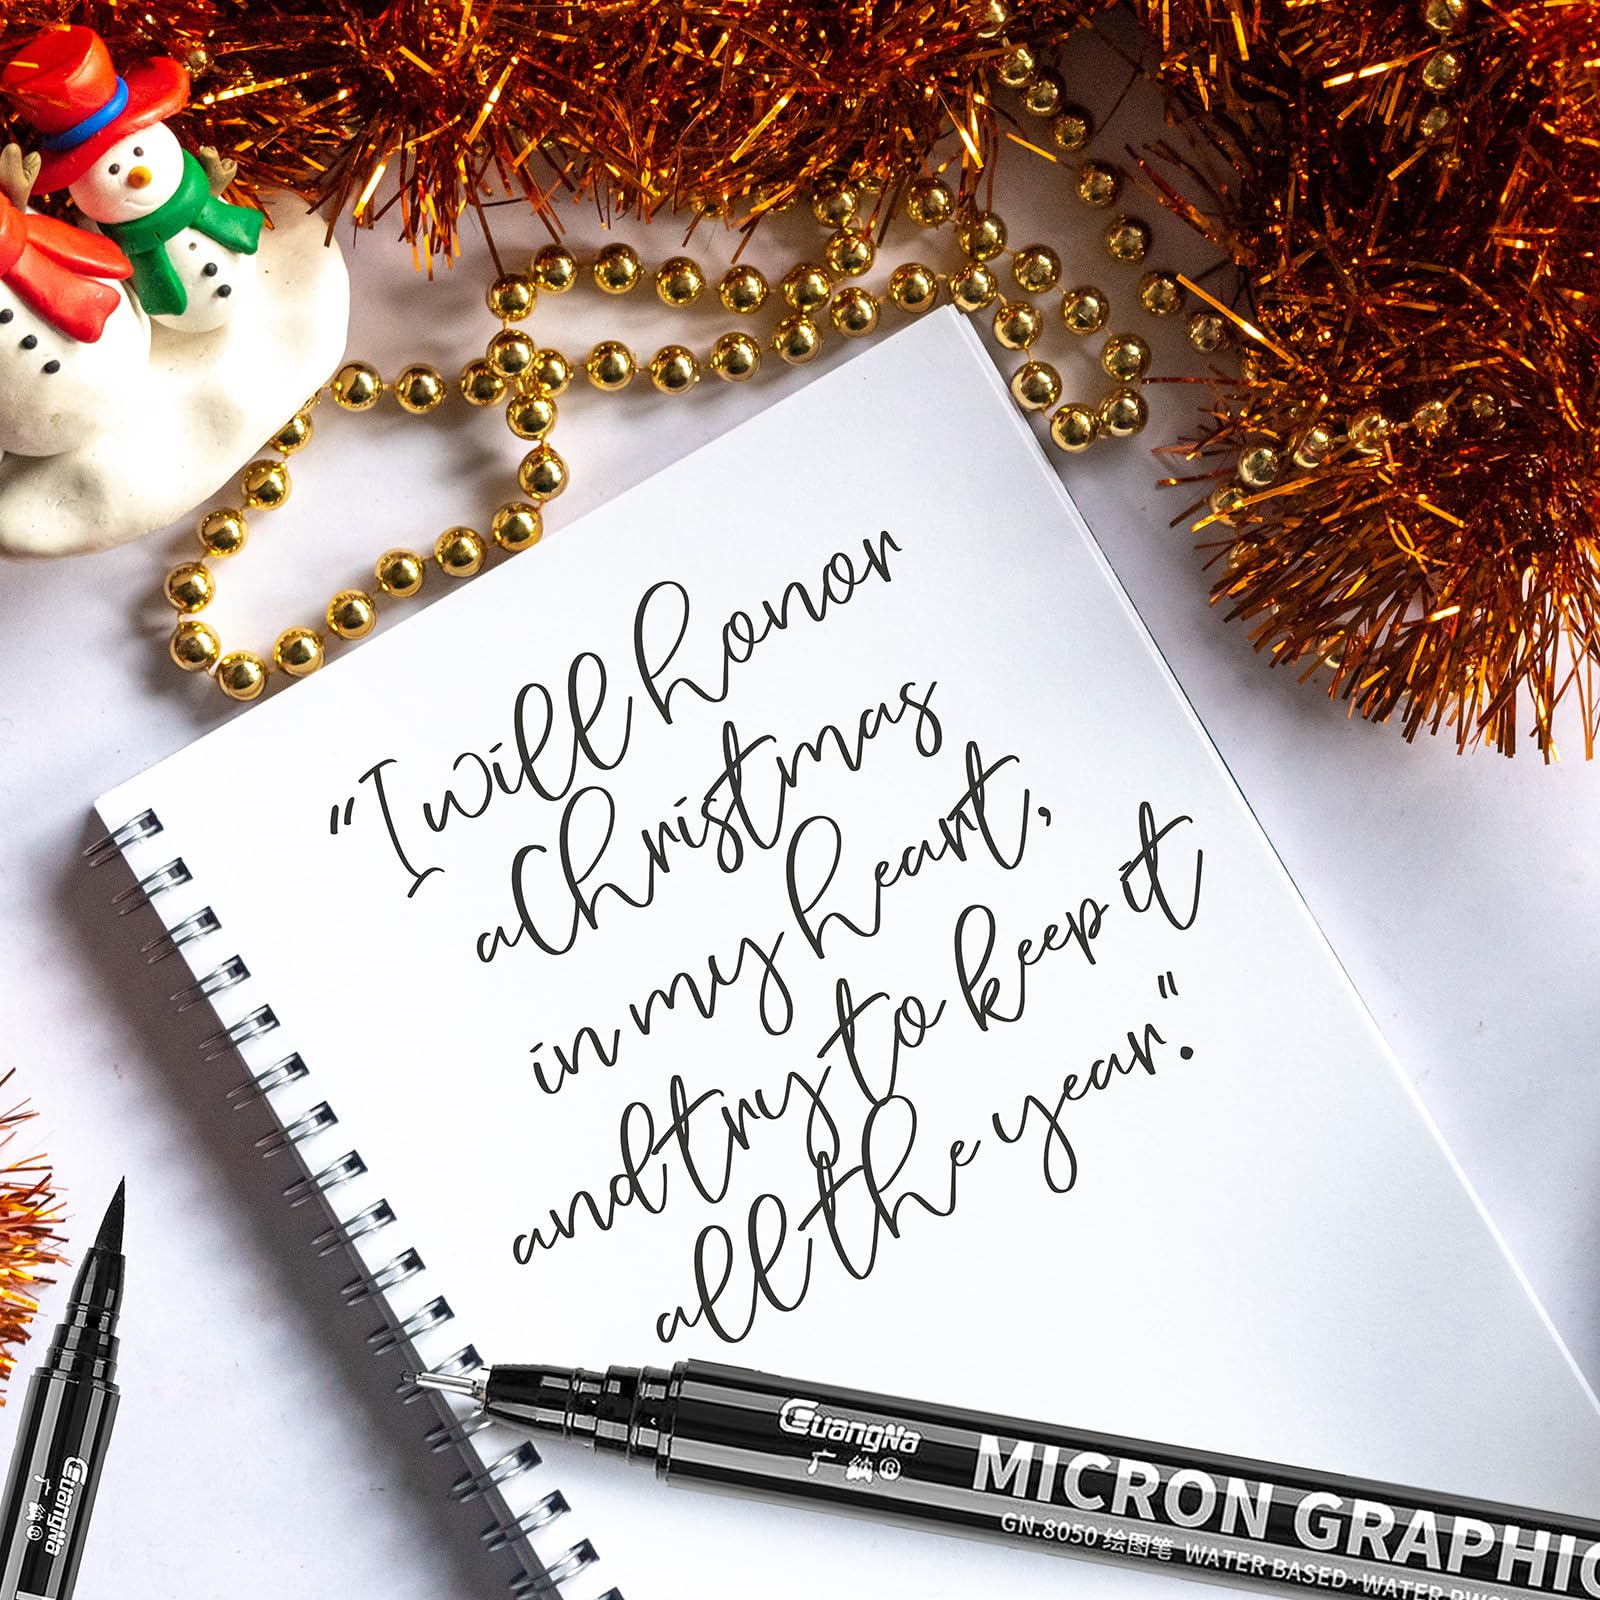 "I will honor
a Christmas
in my heart,
and try to keep it
all the year."
GuangNa
广纳®
MICRON GRAPHIC
GN.8050 绘图笔 WATER BASED·WATER
GuangNa
广纳®